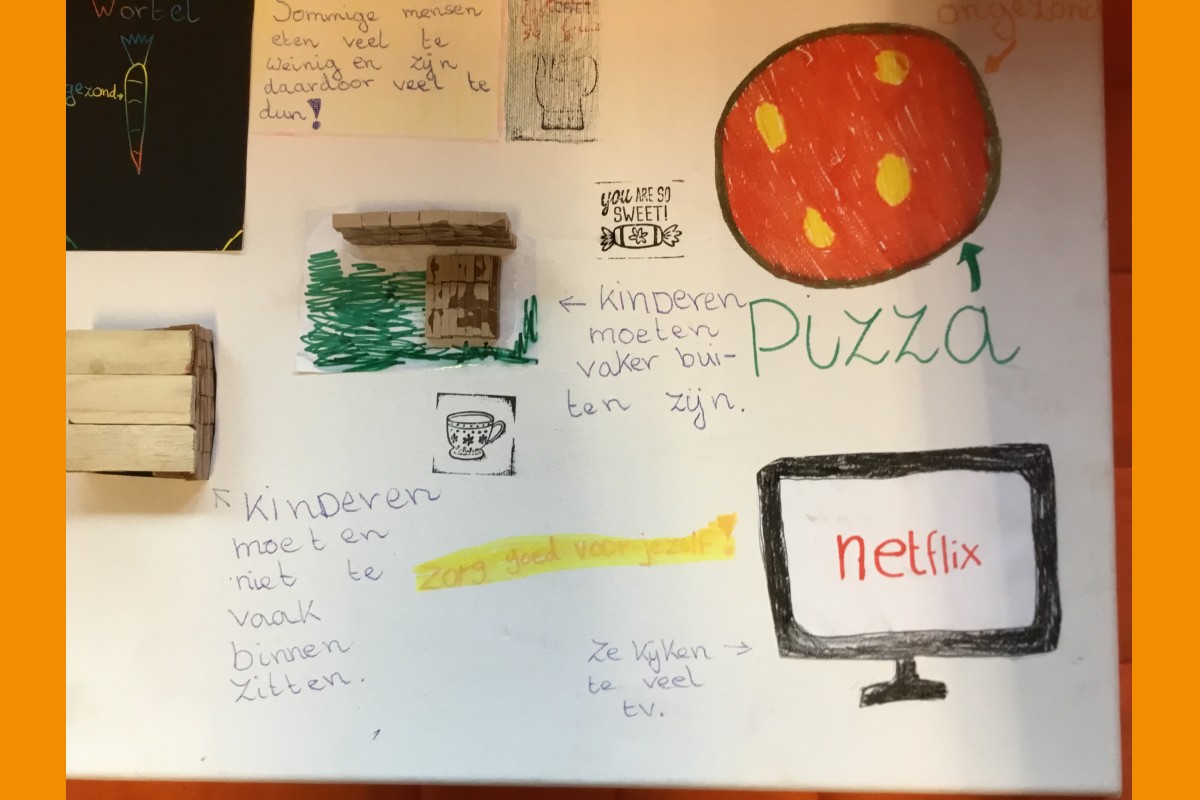 Wortel
gezond
Sommige mensen
eten veel te
weinig en zijn
daardoor veel te
dun!
ongezond
you ARE SO
SWEET!
← Kinderen
moeten
vaker bui-
ten zijn.
Pizza
Kinderen
moeten
niet te
vaak
binnen
zitten.
zorg goed voor jezelf!
netflix
Ze kijken →
te veel
tv.